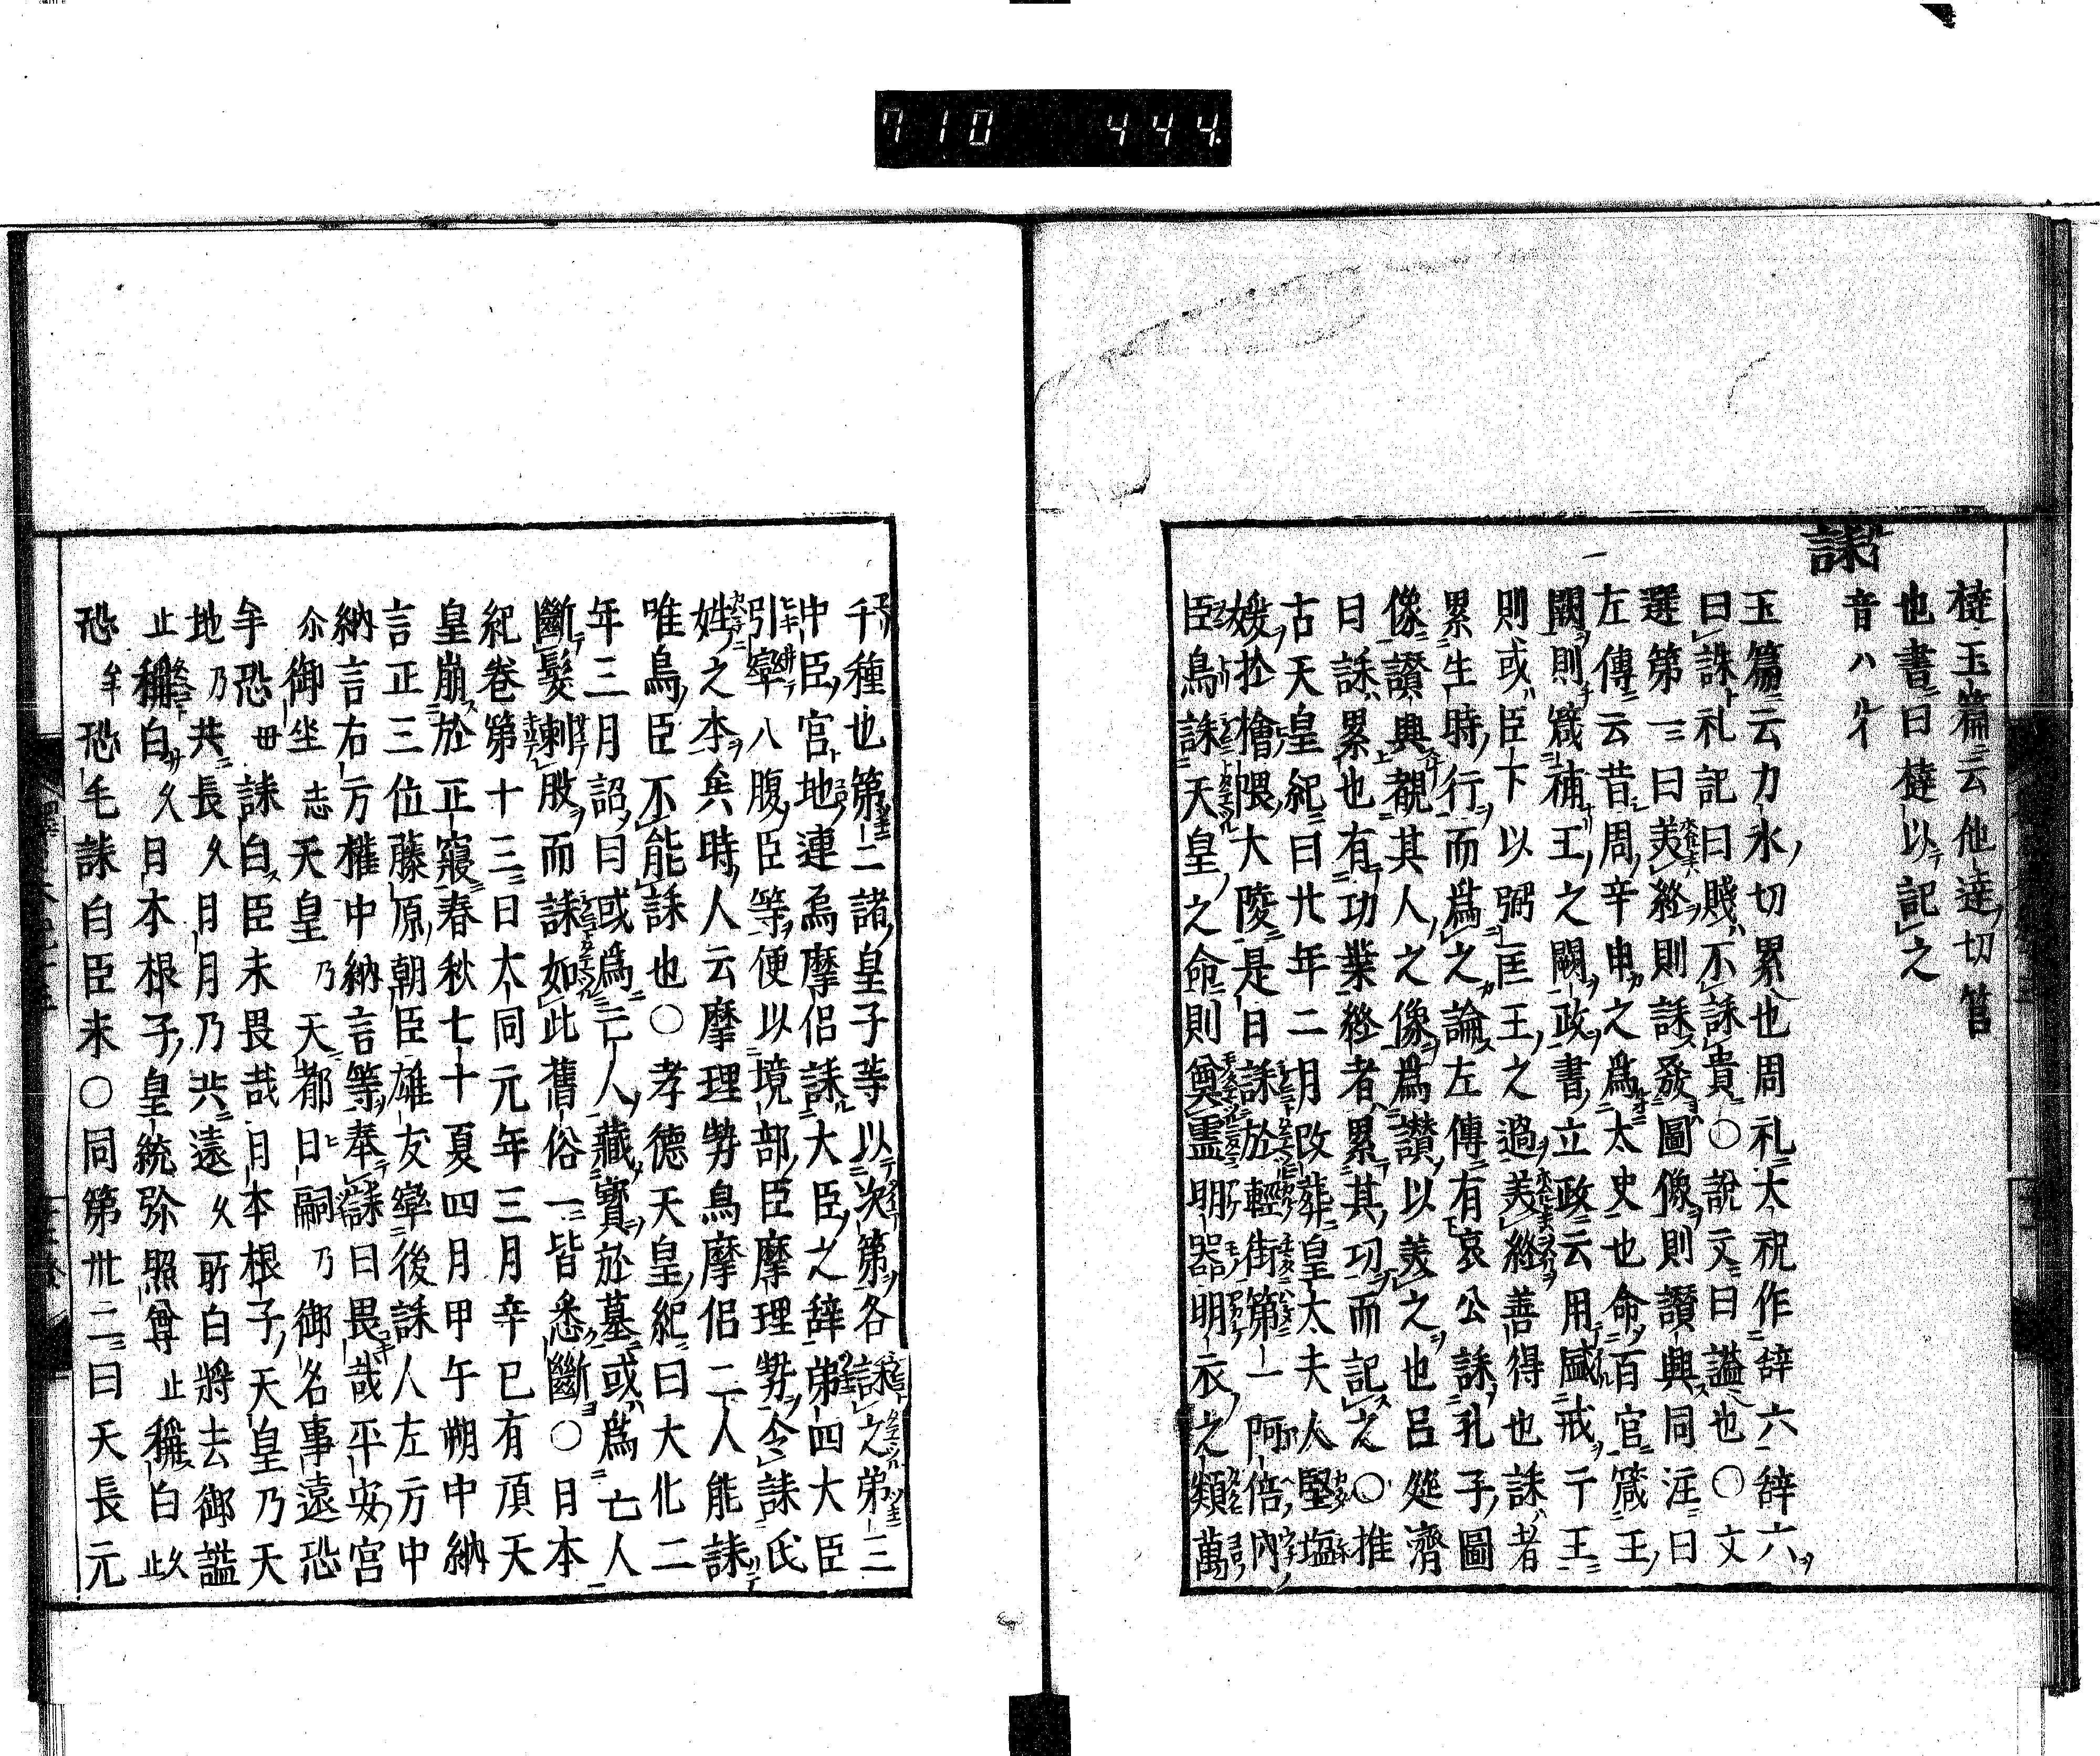 710 444
撻玉篇云他達切笞
也書曰撻以記之
誄
音ハルイ
玉篇云力水切累也周礼太祝作辞六辞六
曰誄礼記曰賤不誄貴○説文曰謚也○文
選第一曰美終則誄發圖像則讃興同注曰
左傳云昔周辛申之為太史也命百官箴王
闕則箴補王之闕政書立政云用咸戒于王
則或臣下以弼匡王之過美終善得也誄者
累生時行而為之論左傳有哀公誄孔子圖
像讃興覩其人之像為讃以美之也呂延濟
曰誄累也有功業終者累其功而記之○推
古天皇紀曰廿年二月改葬皇太夫人堅塩
媛於檜隈大陵是日誄於輕街第一阿倍内
臣鳥誄天皇之命則奠霊明器明衣之類萬
千種也第二諸皇子等以次第各誄之弟三
中臣宮地連烏摩侶誄大臣之辞弟四大臣
引率八腹臣等便以境部臣摩理勢令誄氏
姓之本矣時人云摩理勢烏摩侶二人能誄
唯鳥臣不能誄也○孝德天皇紀曰大化二
年三月詔曰或為亡人藏寶於墓或為亡人
斷髮刺股而誄如此舊俗一皆悉斷○日本
紀卷第十三曰大同元年三月辛巳有頂天
皇崩於正寢春秋七十夏四月甲午朔中納
言正三位藤原朝臣雄友率後誄人左方中
納言右方權中納言等奉誄曰畏哉平安宮
尓御坐志天皇乃天都日嗣乃御名事遠恐
牟恐毌誄白臣未畏哉日本根子天皇乃天
地乃共長久日月乃共遠久所白將去御謚
止稱白久日本根子皇統弥照尊止稱白止久
恐牟恐毛誄白臣未○同第卅二曰天長元